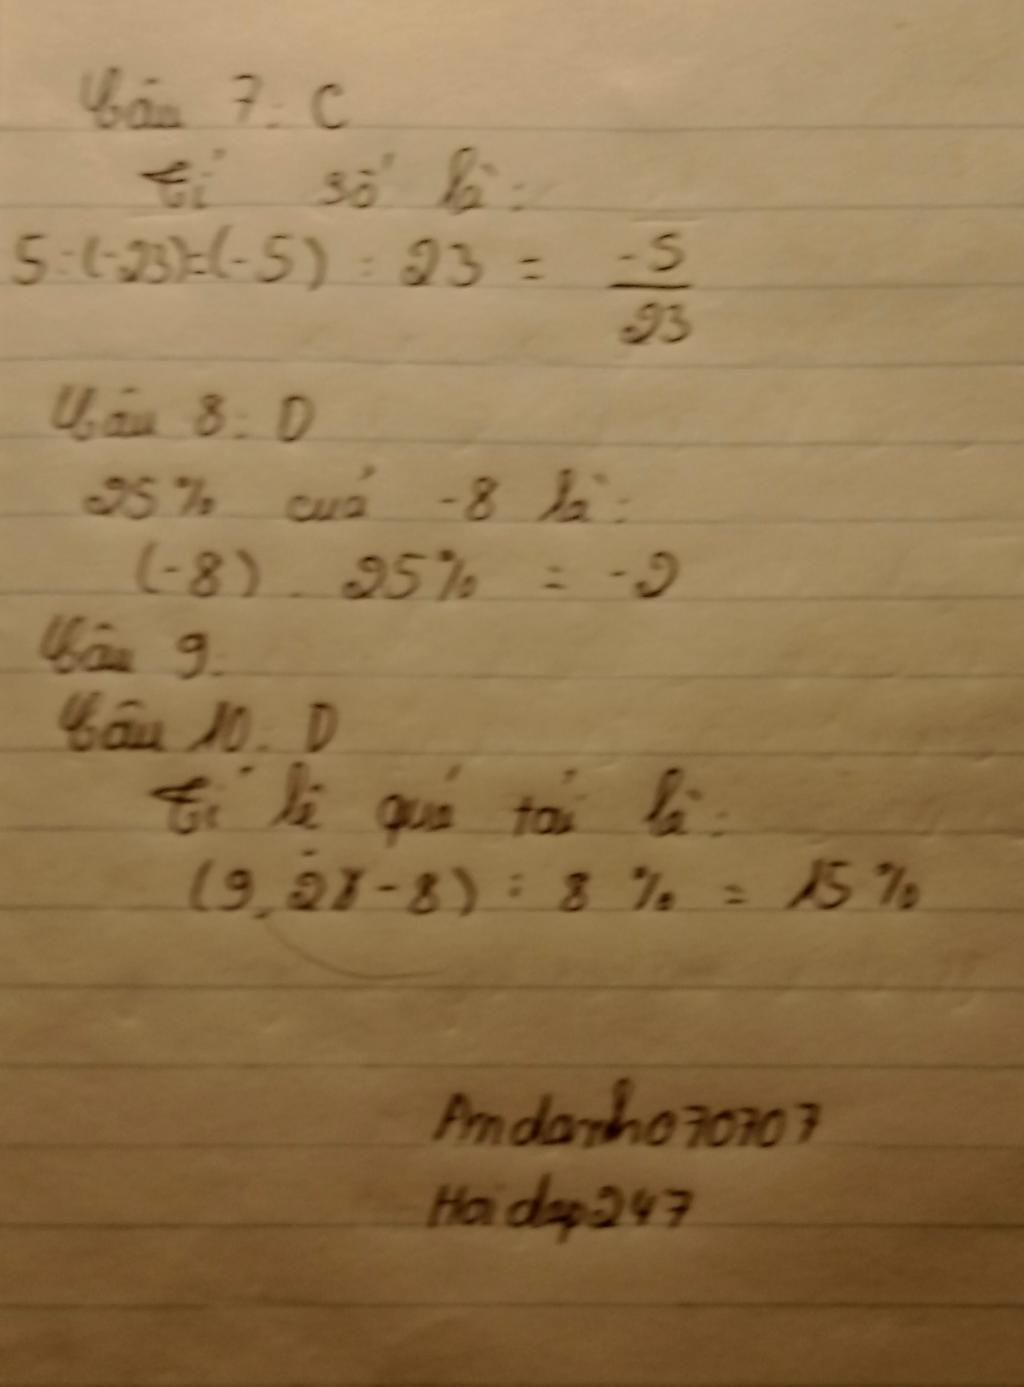 Câu 7: C
Tỉ số là:
5:(-23)=(-5) : 23 = -5/23
Câu 8: D
25% của -8 là:
(-8) . 25% = -2
Câu 9:
Câu 10: D
Tỉ lệ quá tải là:
(9,2 - 8) : 8 % = 15 %
Andanh070707
Hoidap247